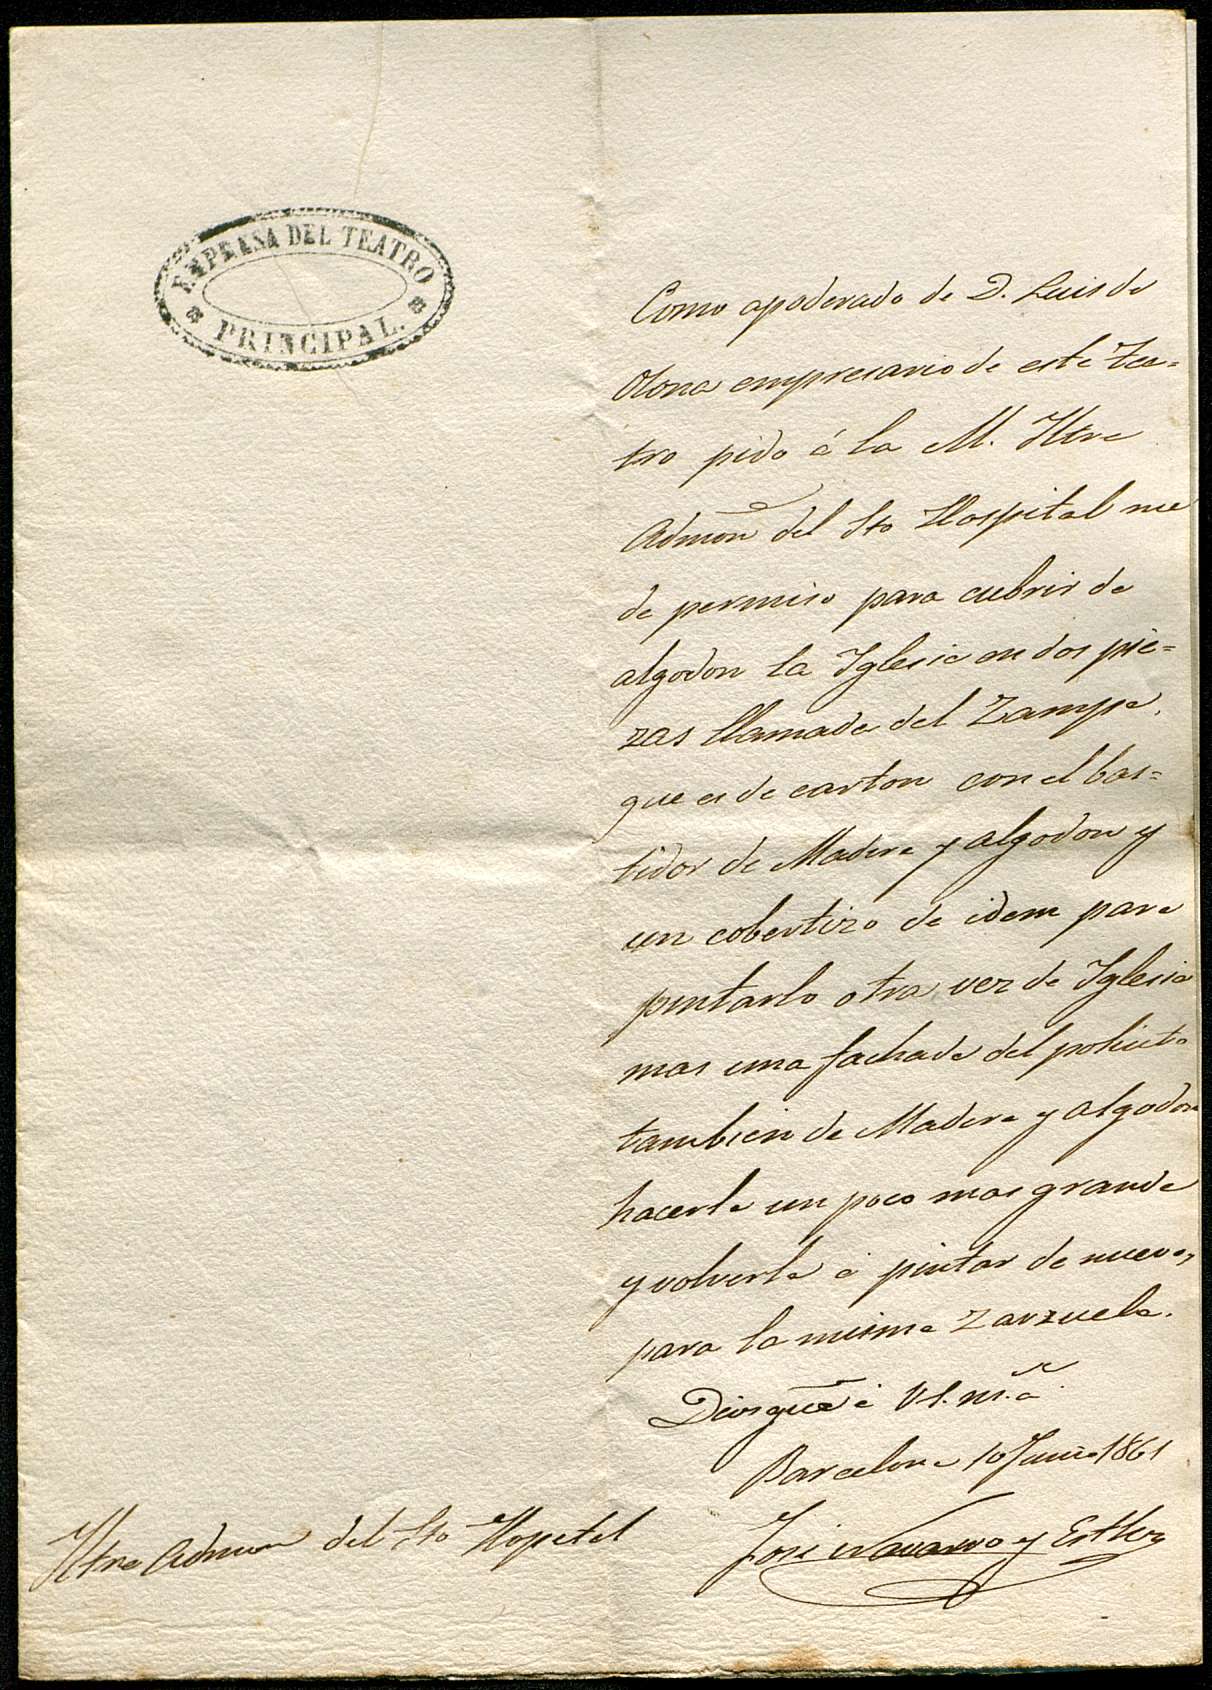 EMPRASA DEL TEATRO
PRINCIPAL.
Como apoderado de D. Luis de
Olona empresario de este Tea=
tro pido á la M. Iltre
Admon del Sto Hospital me
de permiso para cubrir de
algodon la Iglesia en dos pie=
zas llamada del Zampa,
que es de carton con el bas=
tidor de Madera y algodon y
un cobertizo de idem para
pintarlo otra vez de Iglesia
mas una fachada del
tambien de Madera y algodon
hacerla un poco mas grande
y volverla á pintar de nuevo,
para la misma Zarzuela.
Dios gue á V.S. ms. as.
Barcelona 10 Junio 1861
José Navarro y
Iltre Admon del Sto Hopital